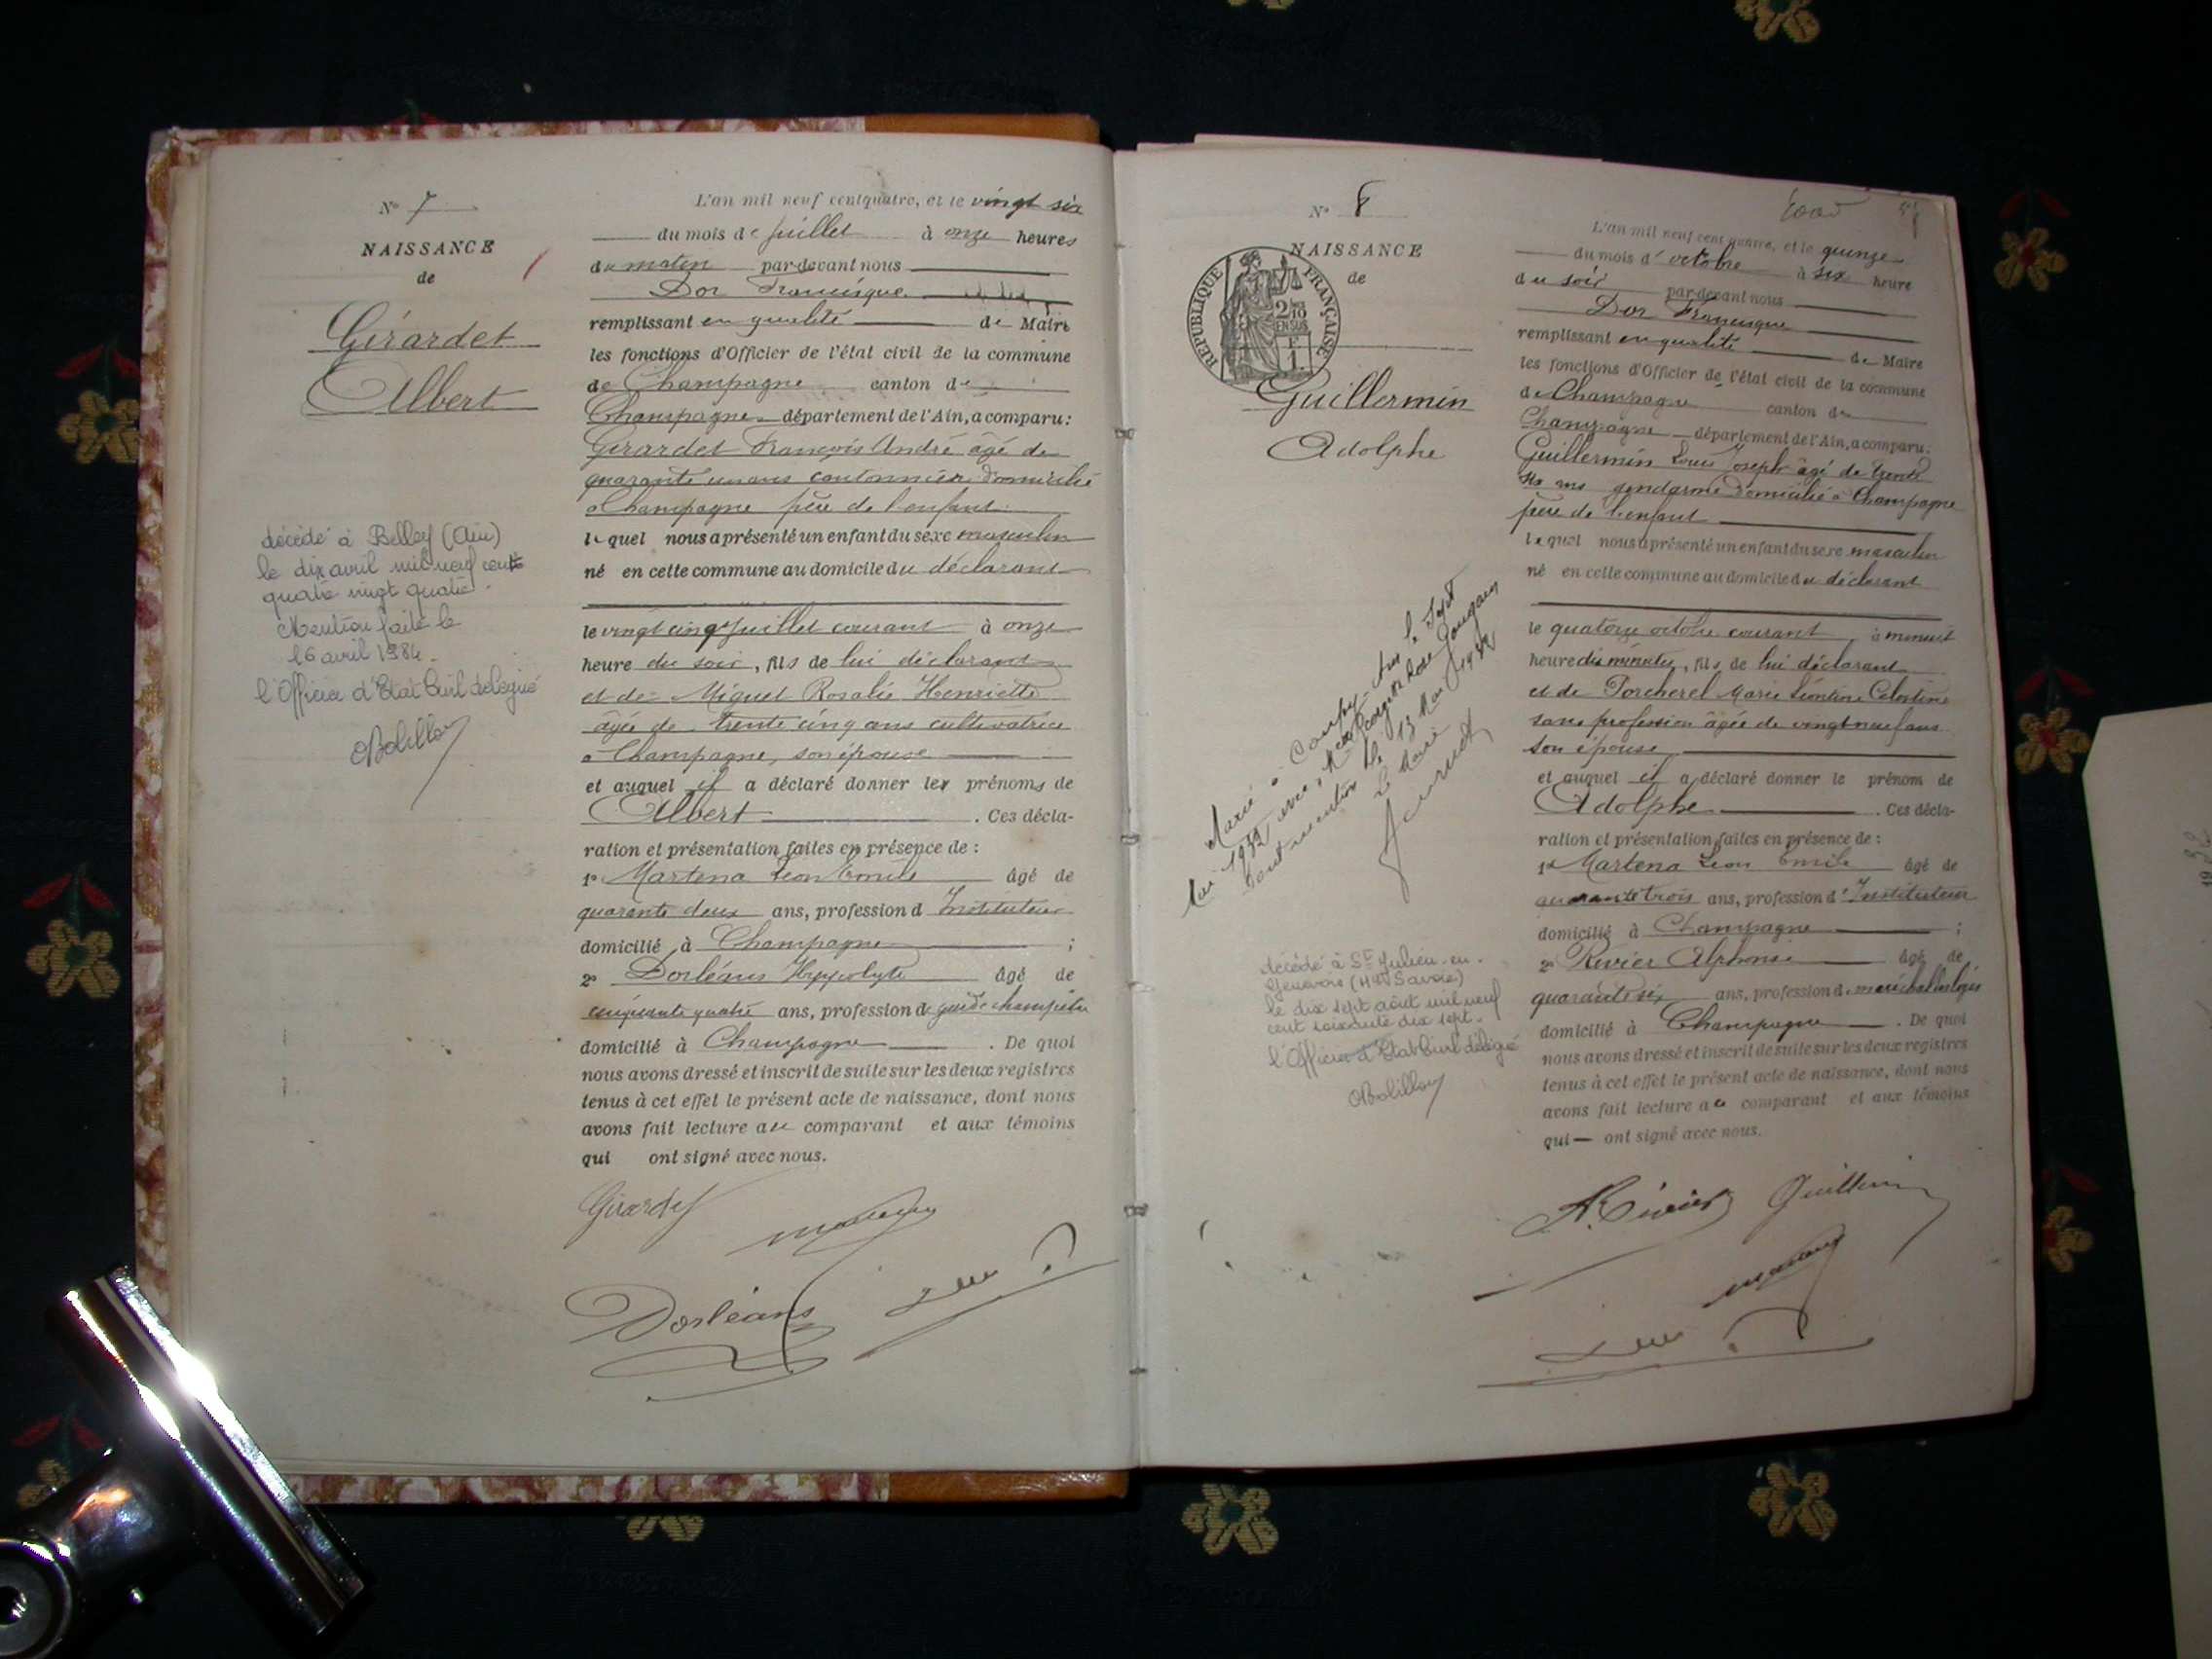 N° 7
NAISSANCE
de
Girardet
Albert
décédé à Belley (Ain)
le dix avril mil neuf cent
quatre vingt quatre.
Mention faite le
16 avril 1984.
l'Officier d'Etat Civil délégué
L'an mil neuf cent quatre, et le vingt six
du mois de juillet à onze heures
du matin par-devant nous
Dor Francisque
remplissant en qualité de Maire
les fonctions d'Officier de l'état civil de la commune
de Champagne canton de
Champagne département de l'Ain, a comparu:
Girardet François André âgé de
quarante un ans cantonnier domicilié
à Champagne père de l'enfant
lequel nous a présenté un enfant du sexe masculin
né en cette commune au domicile du déclarant
le vingt cinq juillet courant à onze
heure du soir, fils de lui déclarant
et de Miguet Rosalie Henriette
âgée de trente cinq ans cultivatrice
à Champagne, son épouse
et auquel il a déclaré donner les prénoms de
Albert . Ces décla-
ration et présentation faites en présence de :
1° Martena Léon Emile âgé de
quarante deux ans, profession d Instituteur
domicilié à Champagne ;
2° Dorléans Hyppolyte âgé de
cinquante quatre ans, profession de garde champêtre
domicilié à Champagne . De quoi
nous avons dressé et inscrit de suite sur les deux registres
tenus à cet effet le présent acte de naissance, dont nous
avons fait lecture au comparant et aux témoins
qui ont signé avec nous.
Girardet
Dorléans
N° 8
NAISSANCE
de
REPUBLIQUE FRANÇAISE
2/10
EN SUS
F
1.
Guillermin
Adolphe
Marié à le Sept
Mai 1932 avec
dont mention le 13 Mai 1932
Le Maire
décédé à St Julien-en-
Genevois (Hte Savoie)
le dix sept août mil neuf
cent soixante dix sept.
l'Officier d'Etat Civil délégué
L'an mil neuf cent quatre, et le quinze
du mois d'octobre à six heure
du soir par-devant nous
Dor Francisque
remplissant en qualité de Maire
les fonctions d'Officier de l'état civil de la commune
de Champagne canton de
Champagne département de l'Ain, a comparu:
Guillermin Louis Joseph âgé de trente
six ans gendarme domicilié à Champagne
père de l'enfant
lequel nous a présenté un enfant du sexe masculin
né en cette commune au domicile du déclarant
le quatorze octobre courant à minuit
heure dix minutes, fils de lui déclarant
et de Porcherel Marie Léontine Célestine
sans profession âgée de vingt neuf ans
son épouse
et auquel il a déclaré donner le prénom de
Adolphe . Ces décla-
ration et présentation faites en présence de :
1° Martena Léon Emile âgé de
quarante trois ans, profession d'Instituteur
domicilié à Champagne ;
2° Rivier Alphonse âgé de
quarante six ans, profession de maréchal des logis
domicilié à Champagne . De quoi
nous avons dressé et inscrit de suite sur les deux registres
tenus à cet effet le présent acte de naissance, dont nous
avons fait lecture au comparant et aux témoins
qui ont signé avec nous.
A. Rivier Guillermin